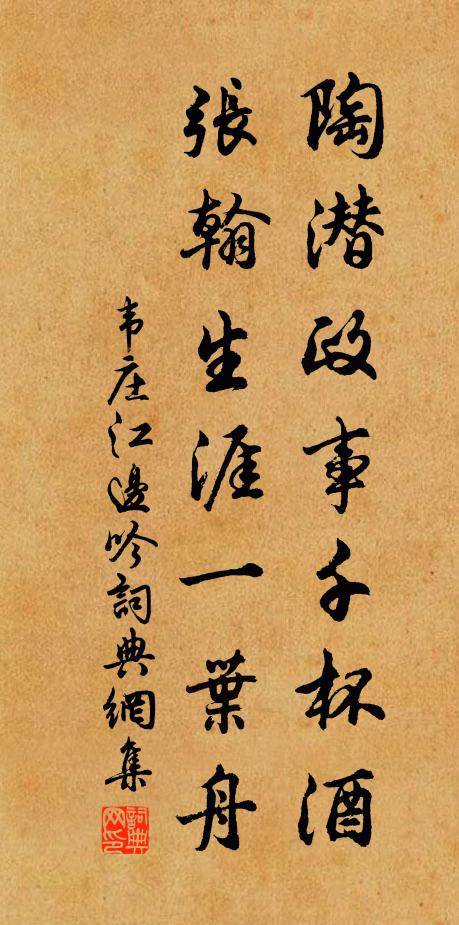 陶潜政事千杯酒
張翰生涯一葉舟
韦庄江邊吟詞典網集
詞典网印